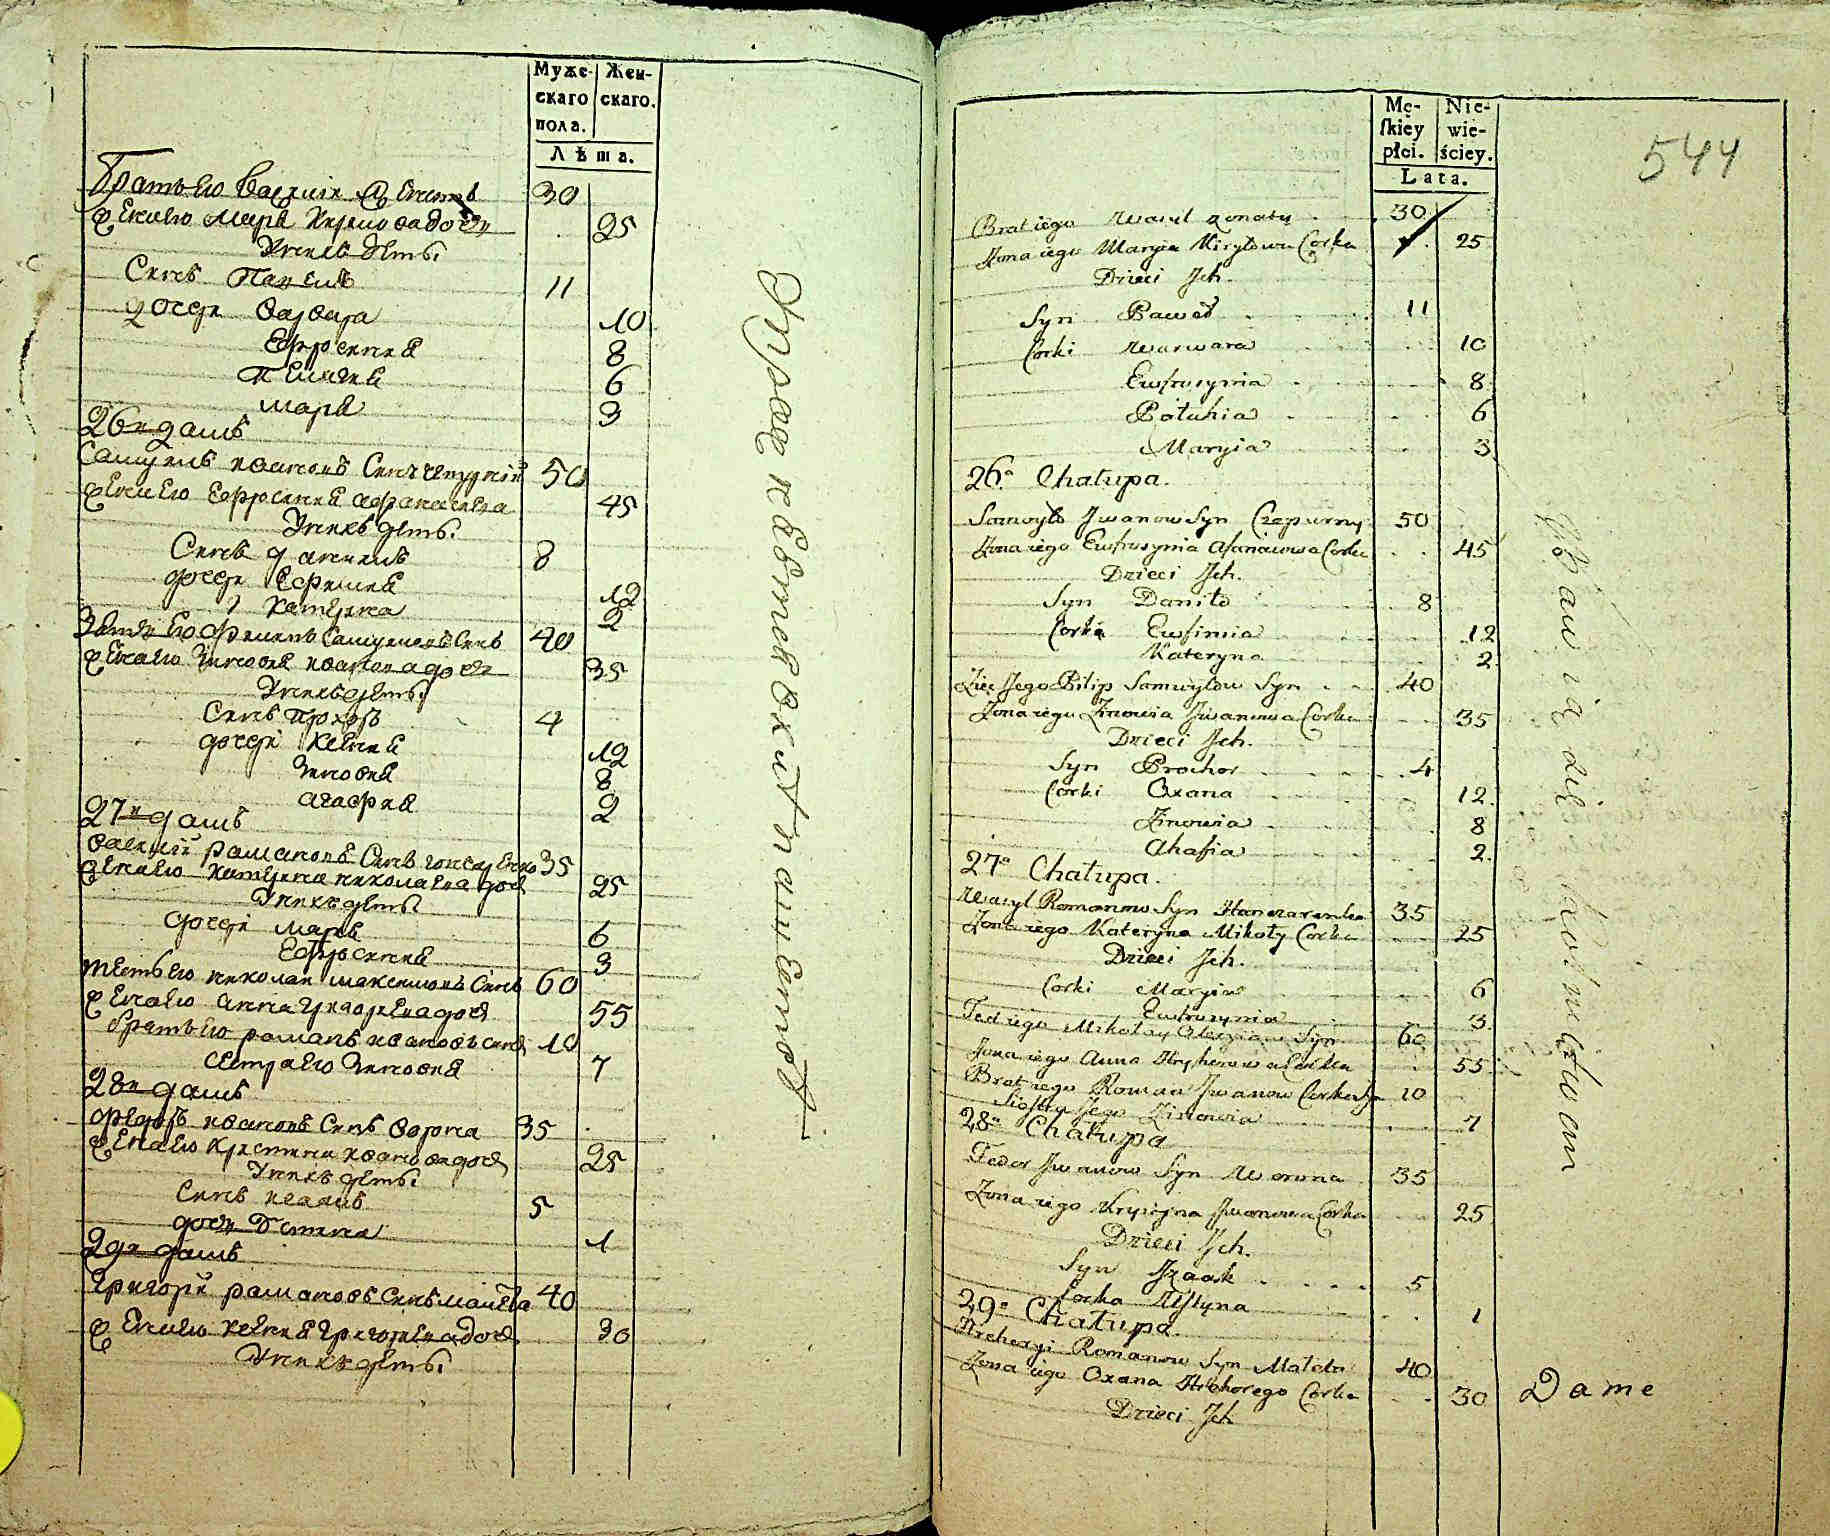 Муже-
скаго
пола.
Жен-
скаго.
Лѣта.
братъ его Василий 30
жена его Марѧ Кирилова дочь 25
У них дети
Синъ Павелъ 11
дочери Варвара 10
Ефросиния 8
Пелагия 6
Мария 3
26й дамъ
Самуилъ Иванов Синъ Чепурний 50
жена его Ефросиния Афанасиева 45
У них дети
Синъ Данилъ 8
дочери Ефимия 12
Катерина 2
Зять его Филипъ Самуиловъ Синъ 40
жена его Зиновия Иванова дочь 35
У них дети
Синъ Прохоръ 4
дочери Ксения 12
Зиновия 8
Агафия 2
27й дамъ
Василий Романовъ Синъ Гончаренко 35
жена его Катерина Николаева дочь 25
У них дети
дочери Мария 6
Ефросиния 3
тесть его Николай Максимовъ Синъ 60
жена его Анна Григориева дочь 55
братъ его Романъ Ивановъ Синъ 10
Сестра его Зиновия 7
28й дамъ
Федоръ Ивановъ Синъ Ворона 35
жена его Кристина Иванова дочь 25
У них дети
Синъ Исаакъ 5
дочь Устина 1
29й дамъ
Григорий Романовъ Синъ 40
жена его Ксения Григориева дочь 30
У них дети
Mę-
skiey
płci.
Nie-
wie-
ściey.
Lata.
544
Brat iego Wasyl 30
Zona iego Maryia Kiryłowa Corka 25
Dzieci Jch.
Syn Paweł 11
Corki Warwara 10
Ewfrosynia 8
Pałahia 6
Maryia 3
26a Chałupa.
Samuyło Jwanow Syn Czepurny 50
Zona iego Ewfrosynia Afanasiowa Corka 45
Dzieci Jch.
Syn Daniło 8
Corka Ewfimia 12
Kateryna 2
Zięc Jego Pilip Samuyłow Syn 40
Zona iego Zinowia Jwanowa Corka 35
Dzieci Jch.
Syn Prochor 4
Corki Oxana 12
Zinowia 8
Ahafia 2
27a Chałupa.
Wasyl Romanow Syn Honczarenko 35
Zona iego Kateryna Mikoły Corka 25
Dzieci Jch.
Corki Maryia 6
Ewfrosynia 3
Teść iego Mikołay Syn 60
Zona iego Anna Hryhorowa Corka 55
Brat iego Roman Jwanow 10
Siostra Jego Zinowia 7
28a Chałupa
Fedor Jwanow Syn Worona 35
Zona iego Krystyna Jwanowa Corka 25
Dzieci Jch.
Syn Jzaak 5
Corka Ustyna 1
29a Chałupa.
Hrehoryi Romanow Syn 40
Zona iego Oxana Hrehorego Corka 30
Dzieci Jch
Dame